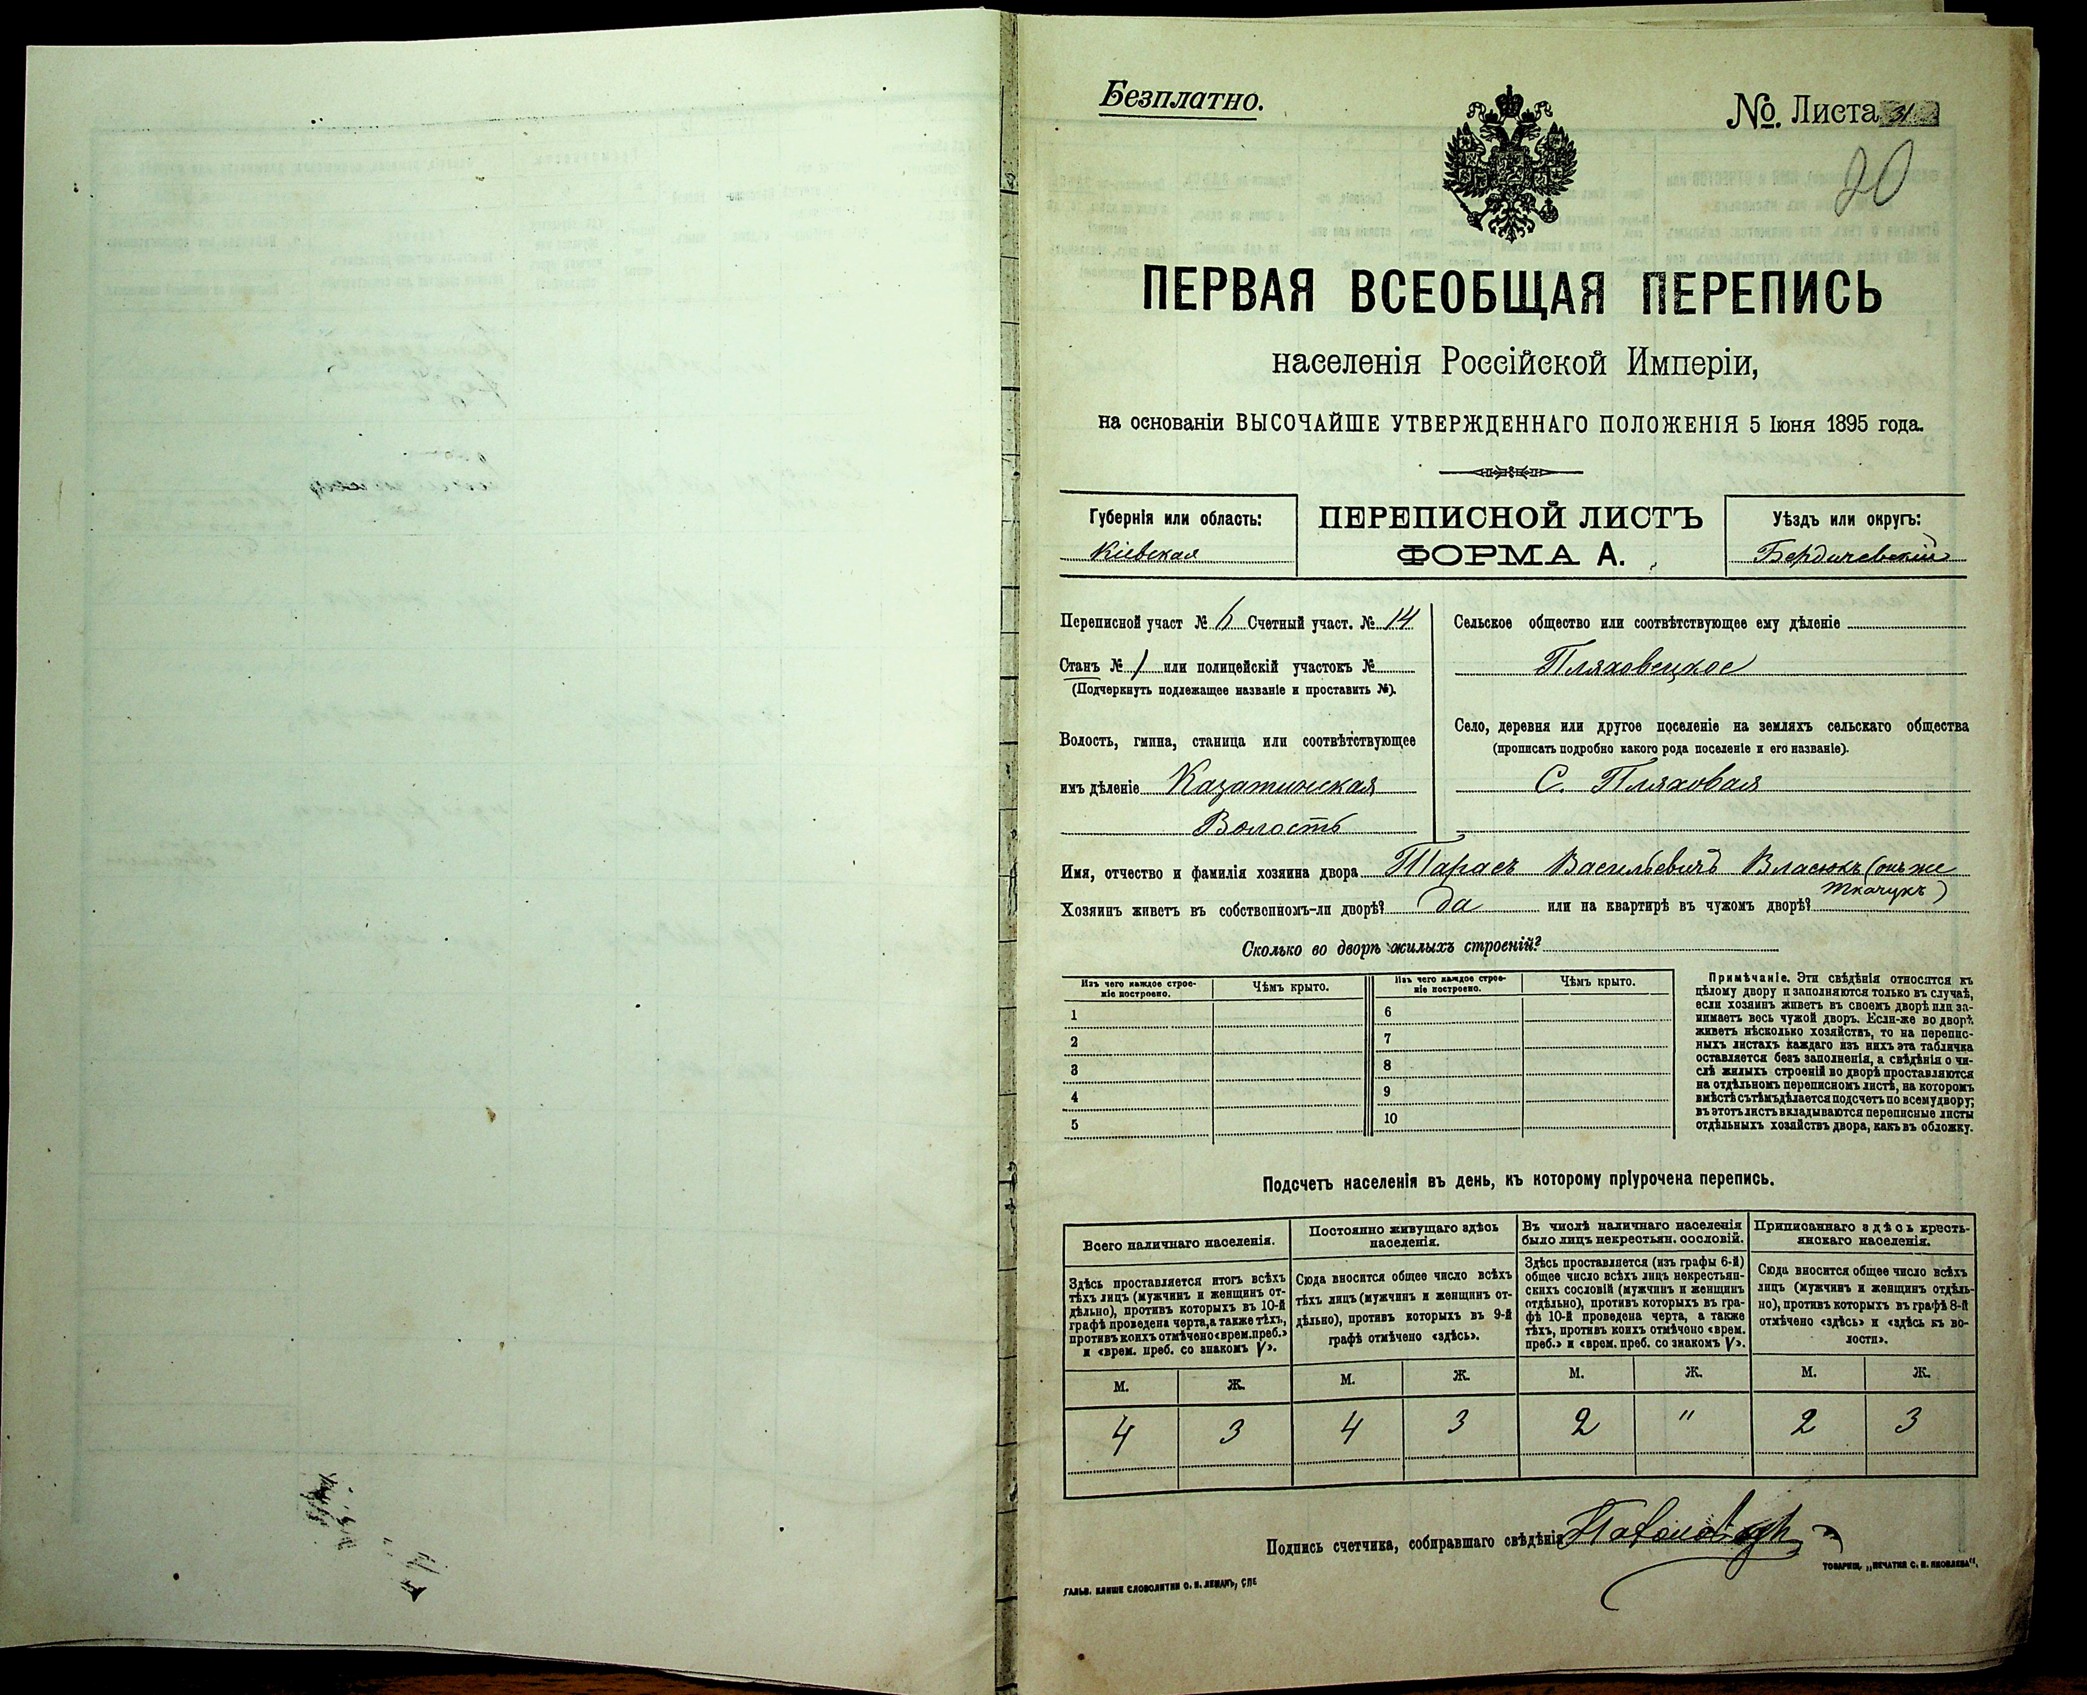 Безплатно.
№. Листа 31
20
ПЕРВАЯ ВСЕОБЩАЯ ПЕРЕПИСЬ
населенія Россійской Имперіи,
на основаніи ВЫСОЧАЙШЕ УТВЕРЖДЕННАГО ПОЛОЖЕНІЯ 5 Іюня 1895 года.
Губернія или область:
Кіевская
ПЕРЕПИСНОЙ ЛИСТЪ
ФОРМА А.
Уѣздъ или округъ:
Бердичевскій
Переписной участ № 6 Счетный участ. № 14
Станъ № 1 или полицейскій участокъ №
(Подчеркнуть подлежащее названіе и проставить №).
Волость, гмина, станица или соотвѣтствующее
имъ дѣленіе Казатинская
Волость
Сельское общество или соотвѣтствующее ему дѣленіе
Пляховецкое
Село, деревня или другое поселеніе на земляхъ сельскаго общества
(прописать подробно какого рода поселеніе и его названіе).
С. Пляховая
Имя, отчество и фамилія хозяина двора Тарасъ Васильевичъ Власюкъ (онъ же
Ткачукъ)
Хозяинъ живетъ въ собственномъ-ли дворѣ? да или на квартирѣ въ чужомъ дворѣ?
Сколько во дворѣ жилыхъ строеній?
Изъ чего каждое строе-
ніе построено.
Чѣмъ крыто.
Изъ чего каждое строе-
ніе построено.
Чѣмъ крыто.
1
2
3
4
5
6
7
8
9
10
Примѣчаніе. Эти свѣдѣнія относятся къ
цѣлому двору и заполняются только въ случаѣ,
если хозяинъ живетъ въ своемъ дворѣ или за-
нимаетъ весь чужой дворъ. Если-же во дворѣ
живетъ нѣсколько хозяйствъ, то на перепис-
ныхъ листахъ каждаго изъ нихъ эта табличка
оставляется безъ заполненія, а свѣдѣнія о чи-
слѣ жилыхъ строеній во дворѣ проставляются
на отдѣльномъ переписномъ листѣ, на которомъ
вмѣстѣ съ тѣмъ дѣлается подсчетъ по всему двору;
въ этотъ листъ вкладываются переписные листы
отдѣльныхъ хозяйствъ двора, какъ въ обложку.
Подсчетъ населенія въ день, къ которому пріурочена перепись.
Всего наличнаго населенія.
Здѣсь проставляется итогъ всѣхъ
тѣхъ лицъ (мужчинъ и женщинъ от-
дѣльно), противъ которыхъ въ 10-й
графѣ проведена черта, а также тѣхъ,
противъ коихъ отмѣчено «врем. преб.»
и «врем. преб. со знакомъ V».
Постоянно живущаго здѣсь
населенія.
Сюда вносится общее число всѣхъ
тѣхъ лицъ (мужчинъ и женщинъ от-
дѣльно), противъ которыхъ въ 9-й
графѣ отмѣчено «здѣсь».
Въ числѣ наличнаго населенія
было лицъ некрестьян. сословій.
Здѣсь проставляется (изъ графы 6-й)
общее число всѣхъ лицъ некрестьян-
скихъ сословій (мужчинъ и женщинъ
отдѣльно), противъ которыхъ въ гра-
фѣ 10-й проведена черта, а также
тѣхъ, противъ коихъ отмѣчено «врем.
преб.» и «врем. преб. со знакомъ V».
Приписаннаго здѣсь кресть-
янскаго населенія.
Сюда вносится общее число всѣхъ
лицъ (мужчинъ и женщинъ отдѣль-
но), противъ которыхъ въ графѣ 8-й
отмѣчено «здѣсь» и «здѣсь къ во-
лости».
М. Ж. М. Ж. М. Ж. М. Ж.
4 3 4 3 2 " 2 3
Подпись счетчика, собиравшаго свѣдѣнія
ГАЛЬВ. КЛИШЕ СЛОВОЛИТНИ О. И. ЛЕМАНЪ, СПБ
ТОВАРИЩ. „ПЕЧАТНЯ С. П. ЯКОВЛЕВА“.